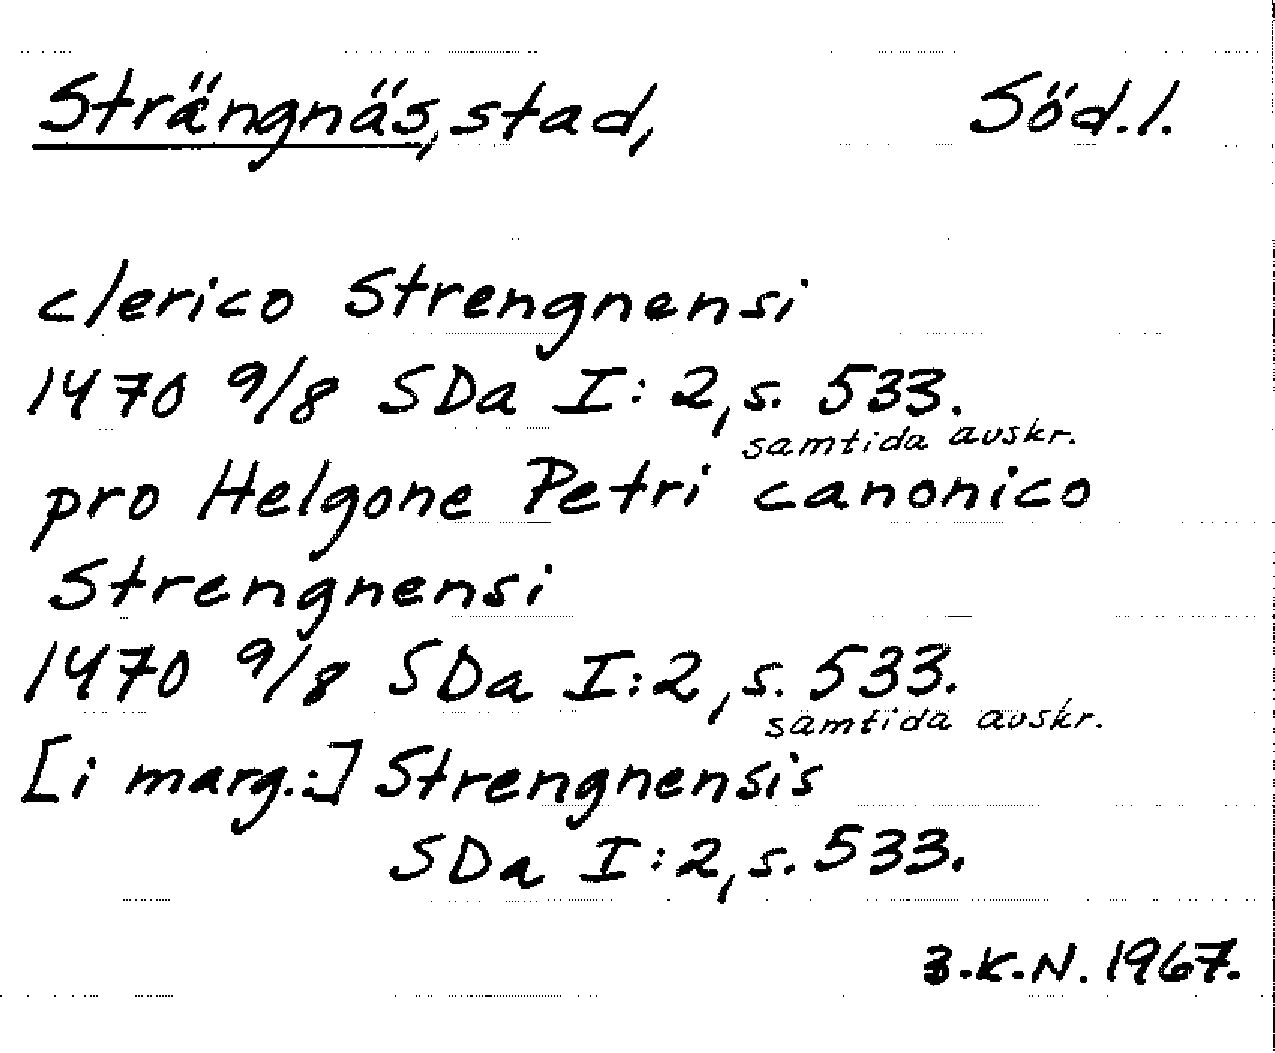 Strängnäs, stad, Söd.l.
clerico Strengnensi
1470 9/8 SDa I:2, s. 533.
samtida avskr.
pro Helgone Petri canonico
Strengnensi
1470 9/8 SDa I:2, s. 533.
samtida avskr.
[i marg.:] Strengnensis
SDa I:2, s. 533.
B.K.N. 1967.